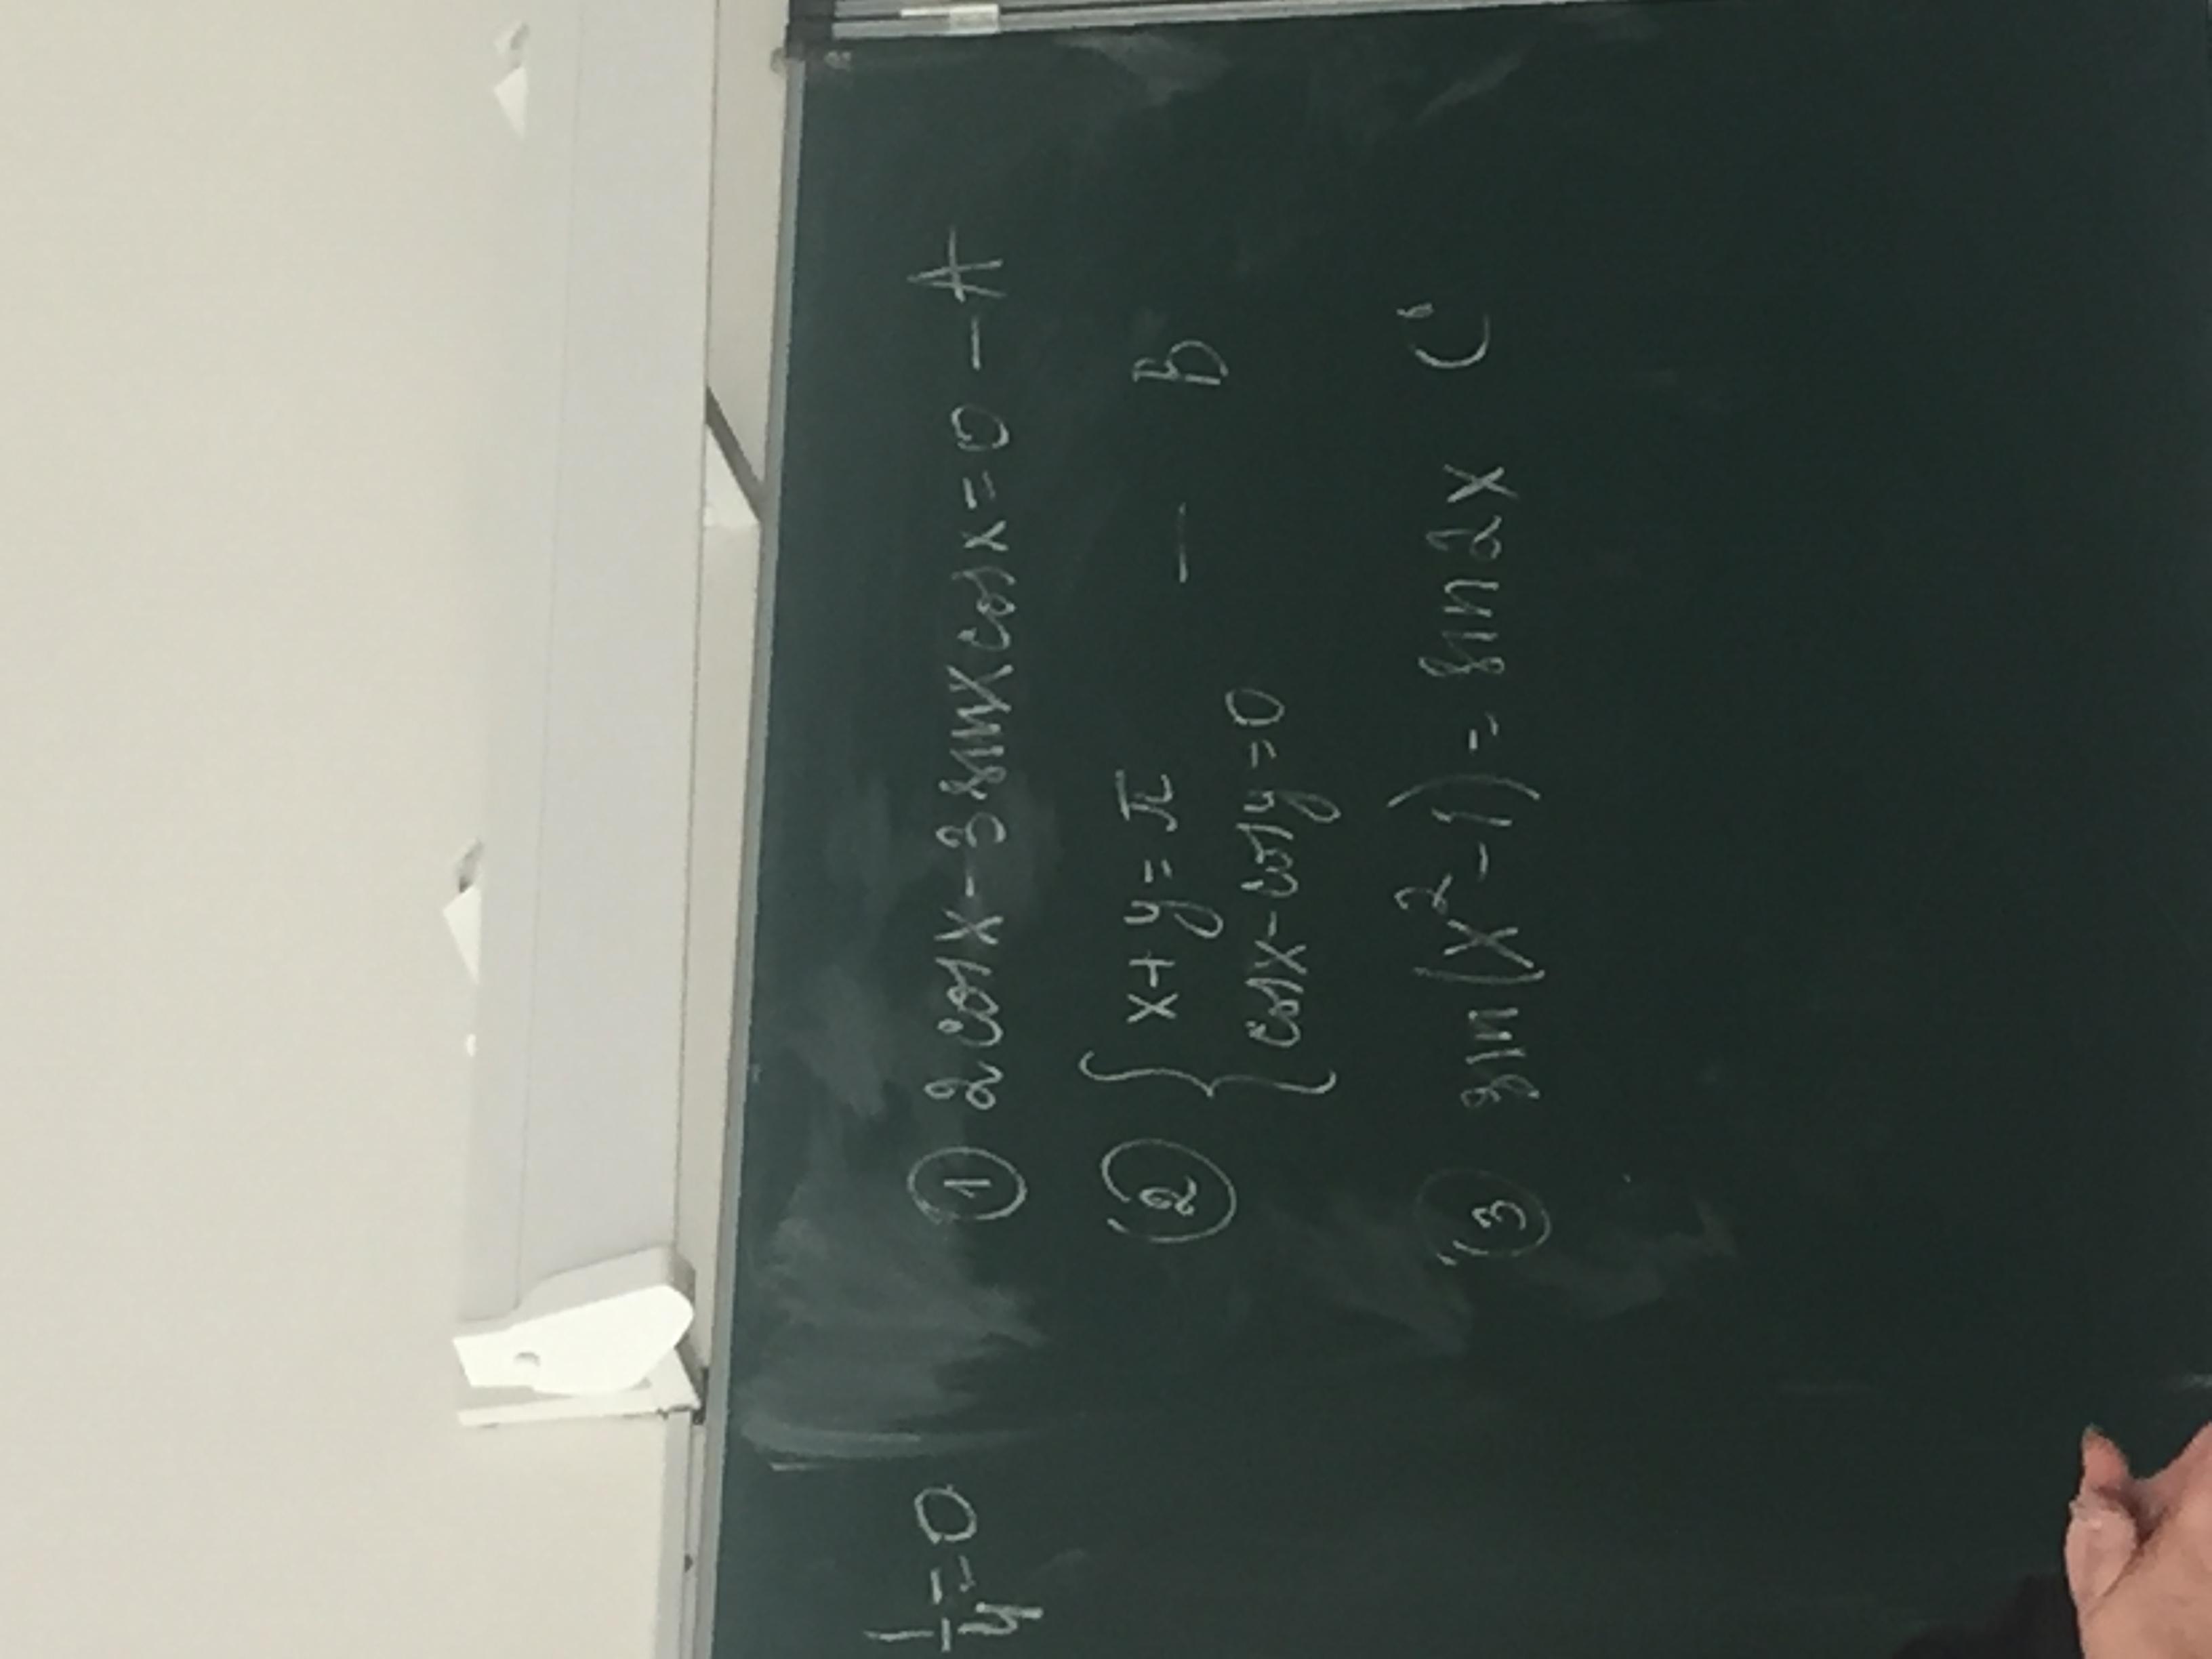 ① 2cosx-3sinxcosx=0 - A
② { x+y=π
cosx-cosy=0 - B
③ sin(x²-1)=sin2x C
1/y=0